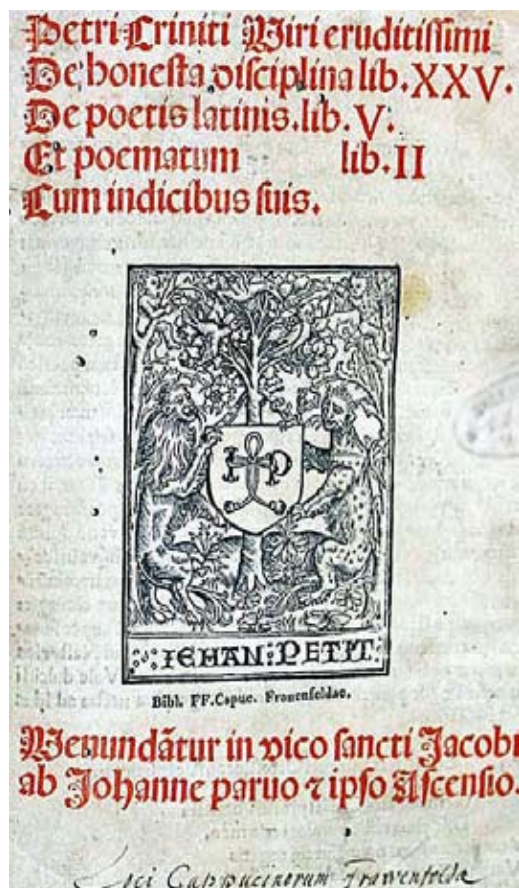 Petri Criniti Viri eruditissimi
De honesta disciplina lib. XXV.
De poetis latinis. lib. V.
Et poematum lib. II
Cum indicibus suis.
I P
IEHAN PETIT
Bibl. FF. Capuc. Frauenfeldae.
Venundãtur in vico sancti Jacobi
ab Johanne paruo ⁊ ipso Ascensio.
Loci Cappucinorum Frawenfeldae